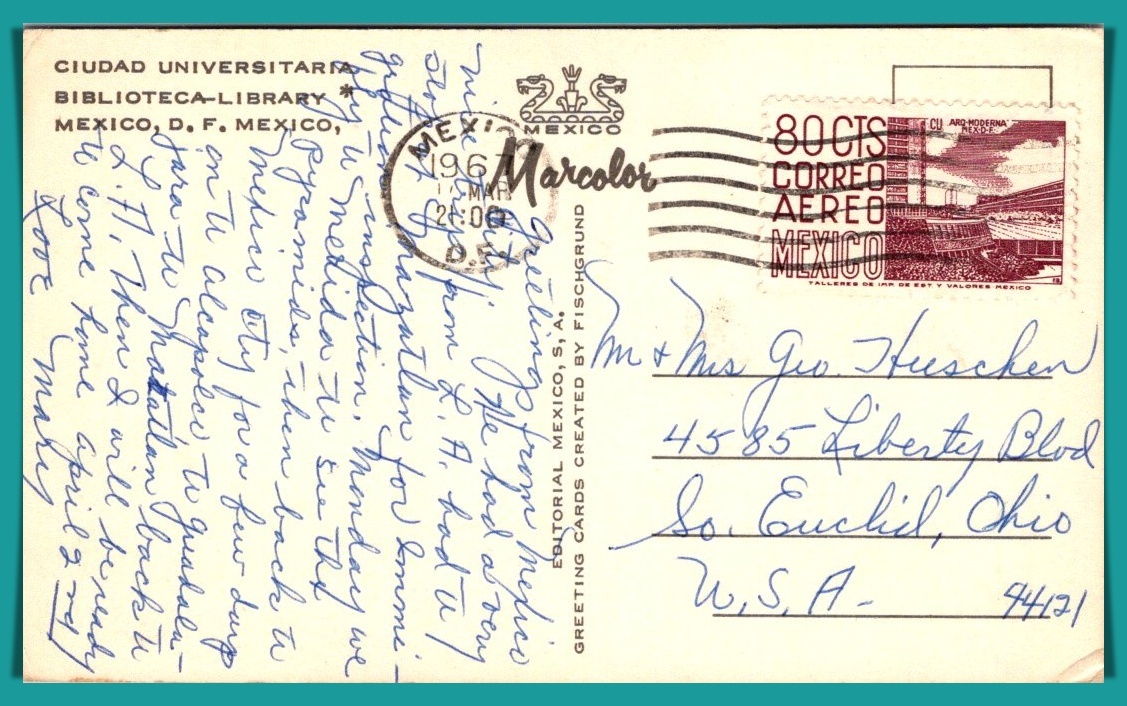 CIUDAD UNIVERSITARIA
BIBLIOTECA-LIBRARY *
MEXICO, D. F. MEXICO,
MEXICO
Marcolor
MEXICO
1967
MAR
D.F.
80 CTS
CORREO
AEREO
MEXICO
CU ARQ-MODERNA
MEX-D-F-
TALLERES DE IMP. DE EST. Y VALORES MEXICO
EDITORIAL MEXICO, S, A.
GREETING CARDS CREATED BY FISCHGRUND
Greetings from Mexico
City. We had a very
nice trip from L. A. had to
stop at Mazatlan for Immi-
gration inspection. Monday we
fly to Merida to see the
Pyramids, then back to
Mexico City for a few days
on to Acapolco to Guadala-
jara to Mazatlan back to
L. A. Then I will be ready
to come home april 2nd
Love Mary
Mr & Mrs Geo. Hueschen
4585 Liberty Blvd
So. Euclid, Ohio
U.S.A- 44121